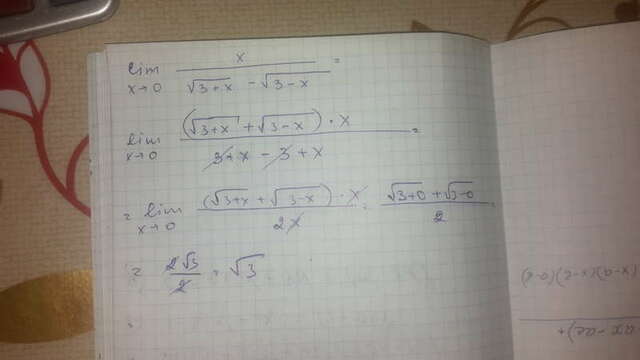 lim x→0 x / (√(3+x) - √(3-x)) =
lim x→0 ((√(3+x) + √(3-x)) · x) / (3+x-3+x) =
= lim x→0 ((√(3+x) + √(3-x)) · x) / 2x = (√(3+0) + √(3-0)) / 2 =
= 2√3 / 2 = √3